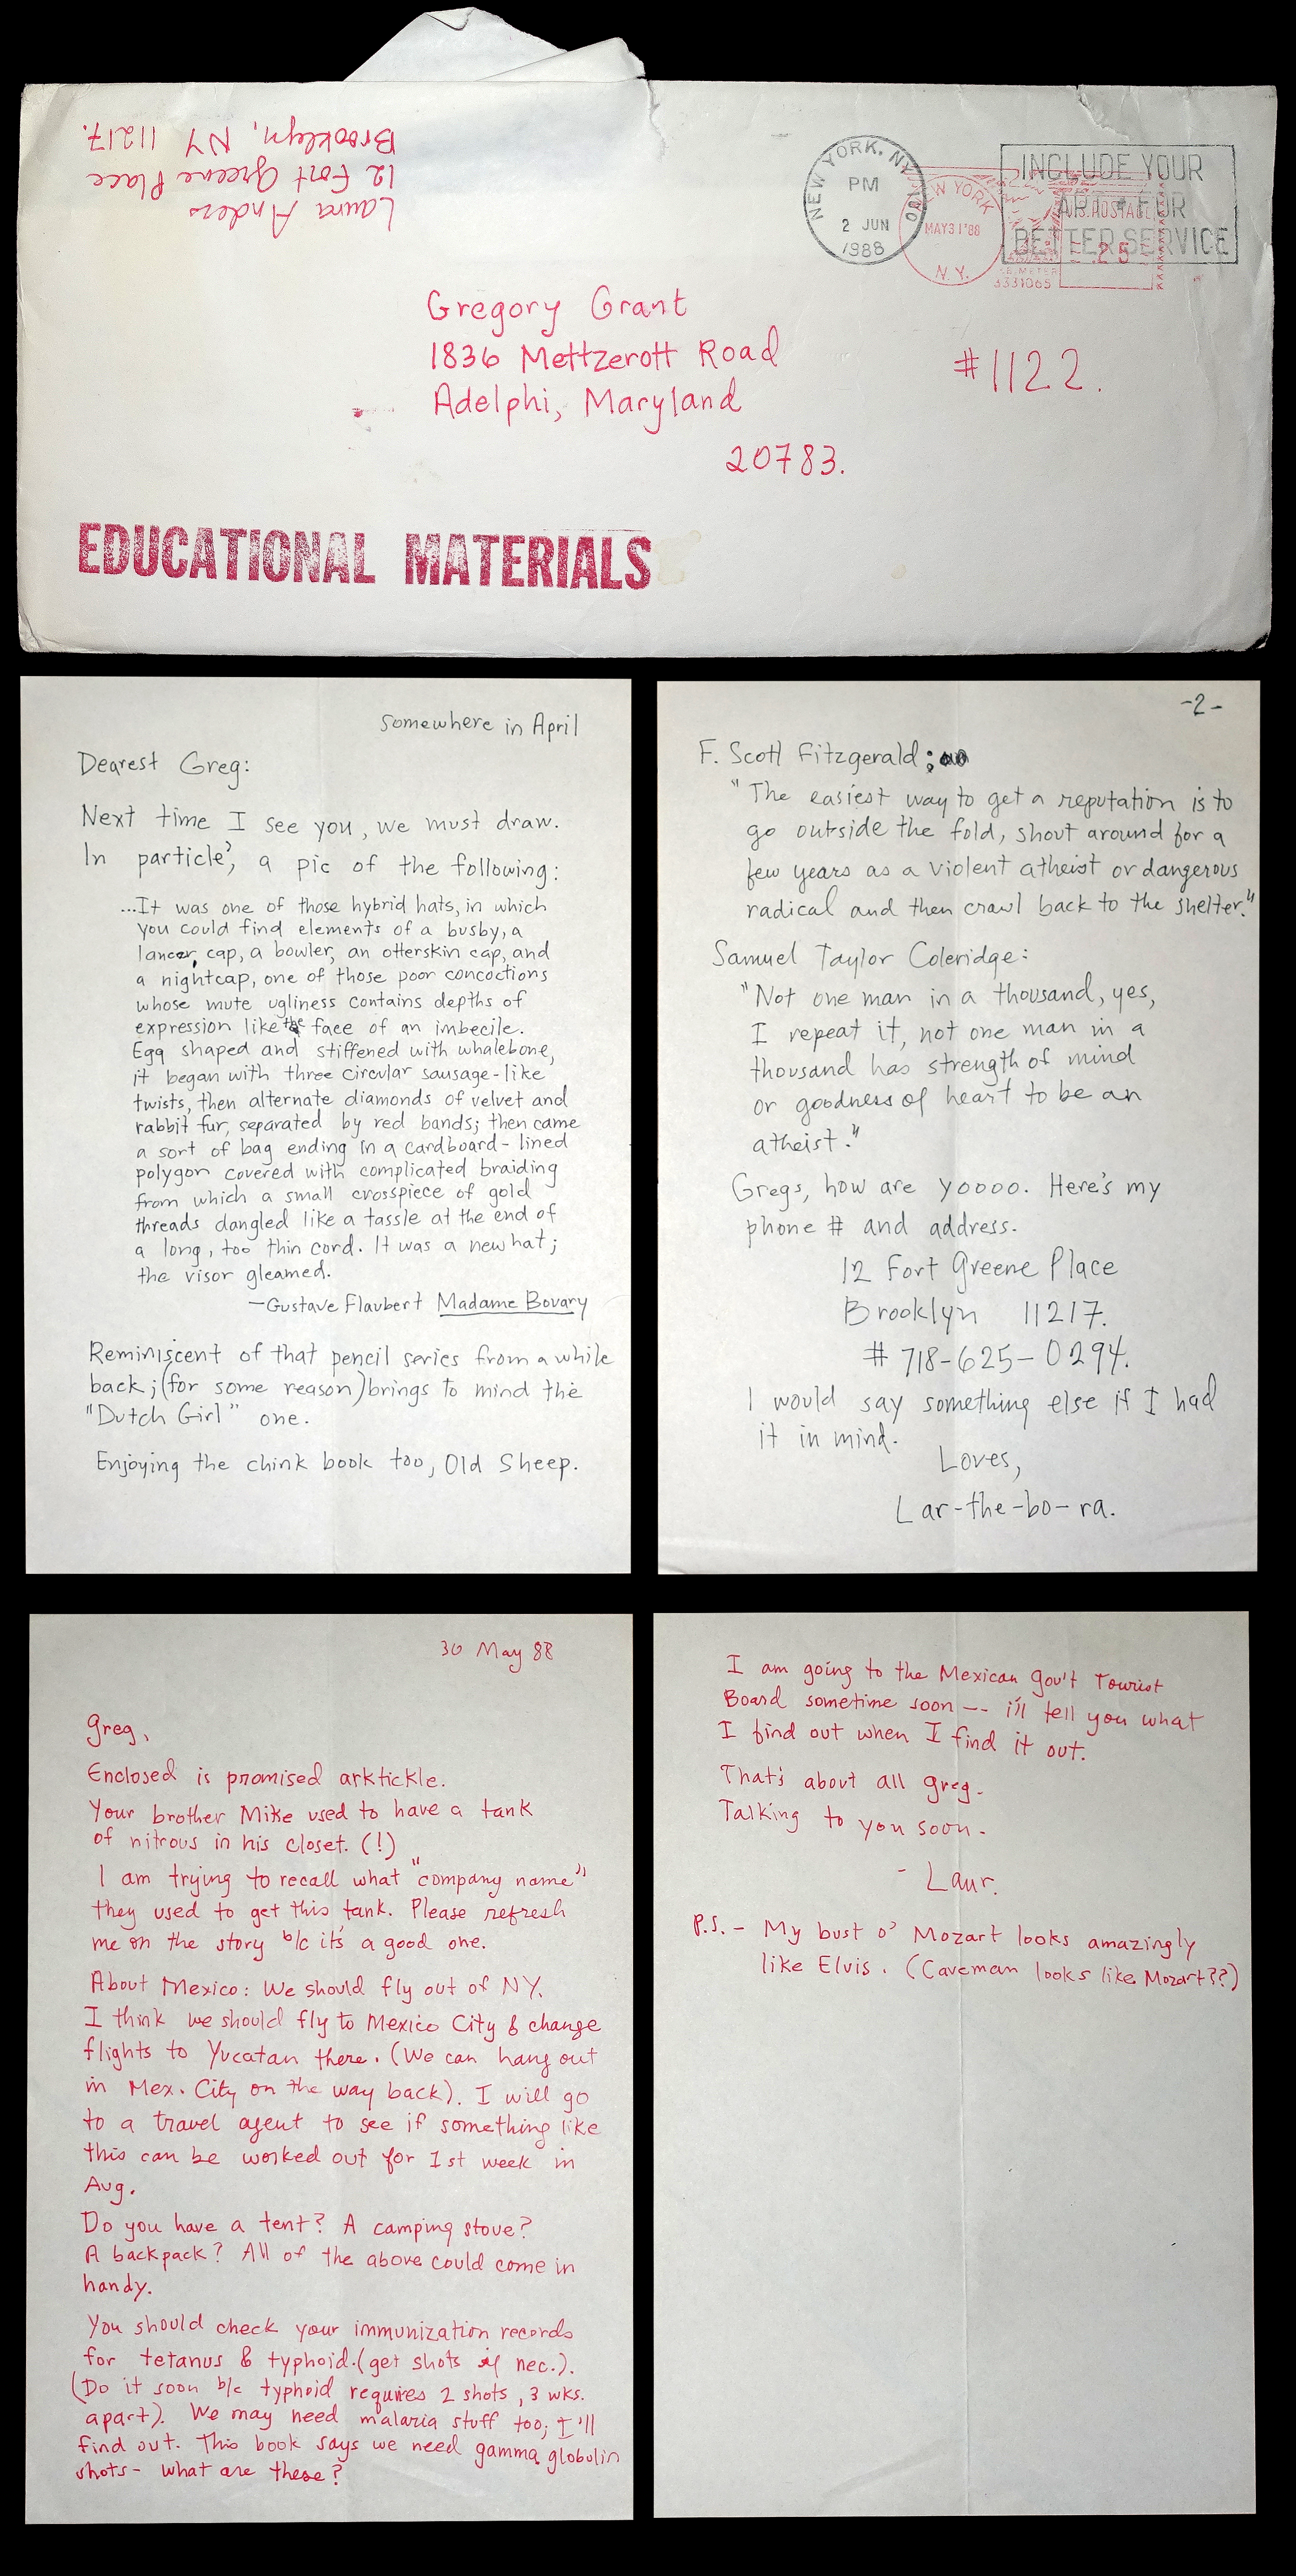 Laura Anders
12 Fort Greene Place
Brooklyn, NY 11217.
NEW YORK, NY
PM
2 JUN
1988
NEW YORK
MAY 31 '88
N.Y.
INCLUDE YOUR
FOR
BETTER SERVICE
U.S. POSTAGE
.25
METER
3331065
Gregory Grant
1836 Mettzerott Road
Adelphi, Maryland
20783.
#1122.
EDUCATIONAL MATERIALS
Somewhere in April
Dearest Greg:
Next time I see you, we must draw.
In particle', a pic of the following:
...It was one of those hybrid hats, in which
you could find elements of a busby, a
lancer cap, a bowler, an otterskin cap, and
a nightcap, one of those poor concoctions
whose mute ugliness contains depths of
expression like the face of an imbecile.
Egg shaped and stiffened with whalebone,
it began with three circular sausage-like
twists, then alternate diamonds of velvet and
rabbit fur, separated by red bands; then came
a sort of bag ending in a cardboard-lined
polygon covered with complicated braiding
from which a small crosspiece of gold
threads dangled like a tassle at the end of
a long, too thin cord. It was a new hat;
the visor gleamed.
—Gustave Flaubert Madame Bovary
Reminiscent of that pencil series from a while
back; (for some reason) brings to mind the
"Dutch Girl" one.
Enjoying the chink book too, Old Sheep.
-2-
F. Scott Fitzgerald;
"The easiest way to get a reputation is to
go outside the fold, shout around for a
few years as a violent atheist or dangerous
radical and then crawl back to the shelter."
Samuel Taylor Coleridge:
"Not one man in a thousand, yes,
I repeat it, not one man in a
thousand has strength of mind
or goodness of heart to be an
atheist."
Gregs, how are yoooo. Here's my
phone # and address.
12 Fort Greene Place
Brooklyn 11217.
# 718-625-0294.
I would say something else if I had
it in mind.
Loves,
Lar-the-bo-ra.
30 May 88
Greg,
Enclosed is promised arktickle.
Your brother Mike used to have a tank
of nitrous in his closet. (!)
I am trying to recall what "company name"
they used to get this tank. Please refresh
me on the story b/c it's a good one.
About Mexico: We should fly out of NY.
I think we should fly to Mexico City & change
flights to Yucatan there. (We can hang out
in Mex. City on the way back). I will go
to a travel agent to see if something like
this can be worked out for 1st week in
Aug.
Do you have a tent? A camping stove?
A backpack? All of the above could come in
handy.
You should check your immunization records
for tetanus & typhoid. (get shots if nec.).
(Do it soon b/c typhoid requires 2 shots, 3 wks.
apart). We may need malaria stuff too; I'll
find out. This book says we need gamma globulin
shots - what are these?
I am going to the Mexican Gov't Tourist
Board sometime soon -- i'll tell you what
I find out when I find it out.
That's about all Greg.
Talking to you soon.
- Laur.
P.S. - My bust o' Mozart looks amazingly
like Elvis. (Caveman looks like Mozart??)